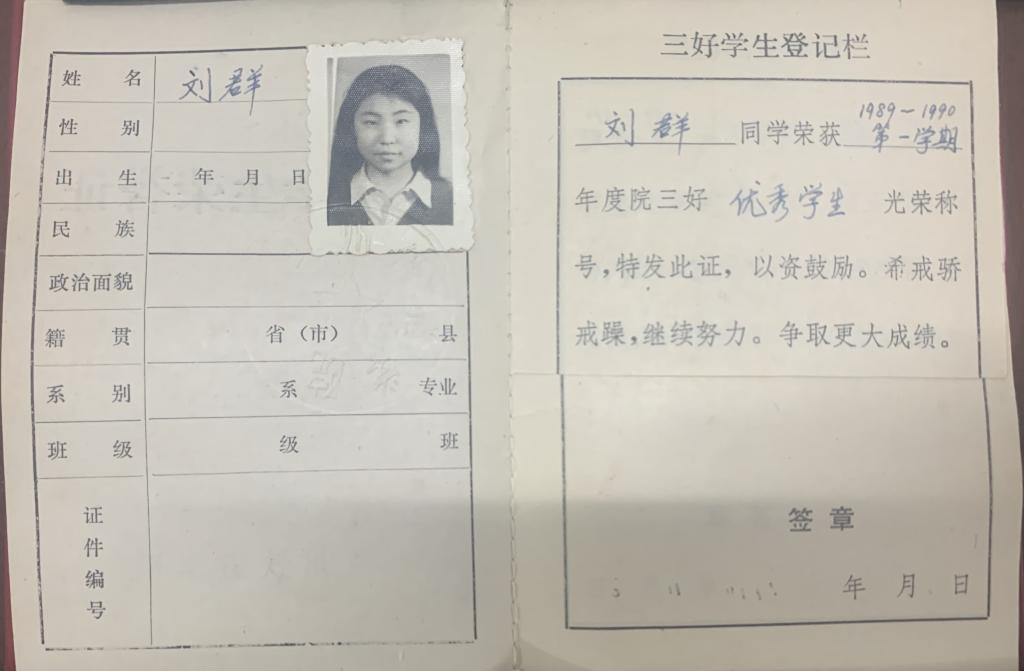 姓名 刘群
性别
出生 年 月 日
民族
政治面貌
籍贯 省（市） 县
系别 系 专业
班级 级 班
证件编号
三好学生登记栏
1989－1990
刘群 同学荣获 第一学期
年度院三好 优秀学生 光荣称
号，特发此证，以资鼓励。希戒骄
戒躁，继续努力。争取更大成绩。
签章
年 月 日